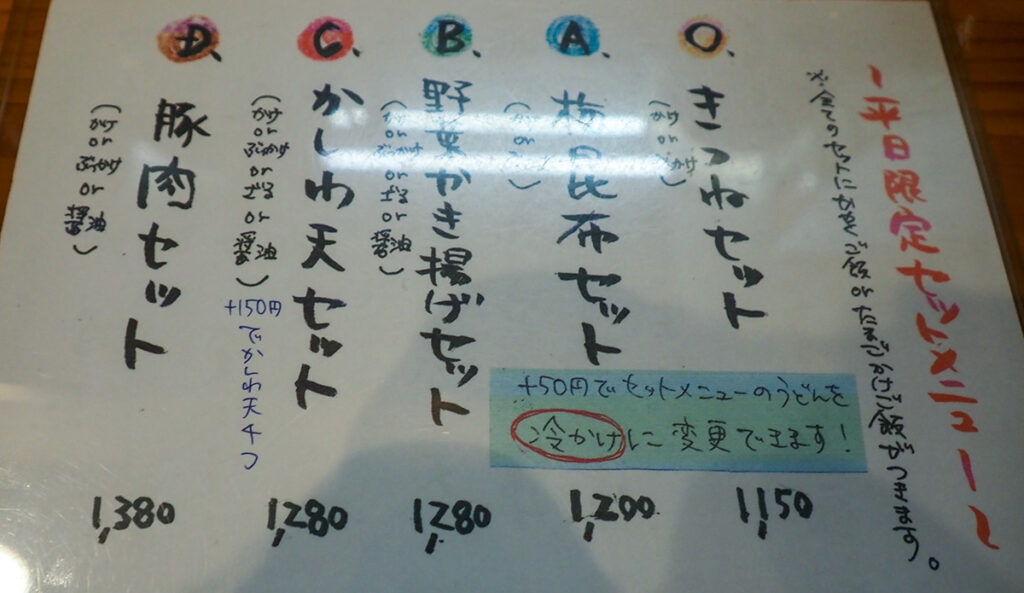 ～平日限定セットメニュー～
※全てのセットにかやくご飯orたまごかけご飯がつきます。
O、きつねセット
1,150
A、梅昆布セット
1,200
B、野菜かき揚げセット
(かけorぶっかけorざるor醤油)
1,280
C、かしわ天セット
(かけorぶっかけorざるor醤油)
+150円でかしわ天4つ
1,280
D、豚肉セット
(かけorぶっかけor醤油)
1,380
+50円でセットメニューのうどんを
冷かけに変更できます!